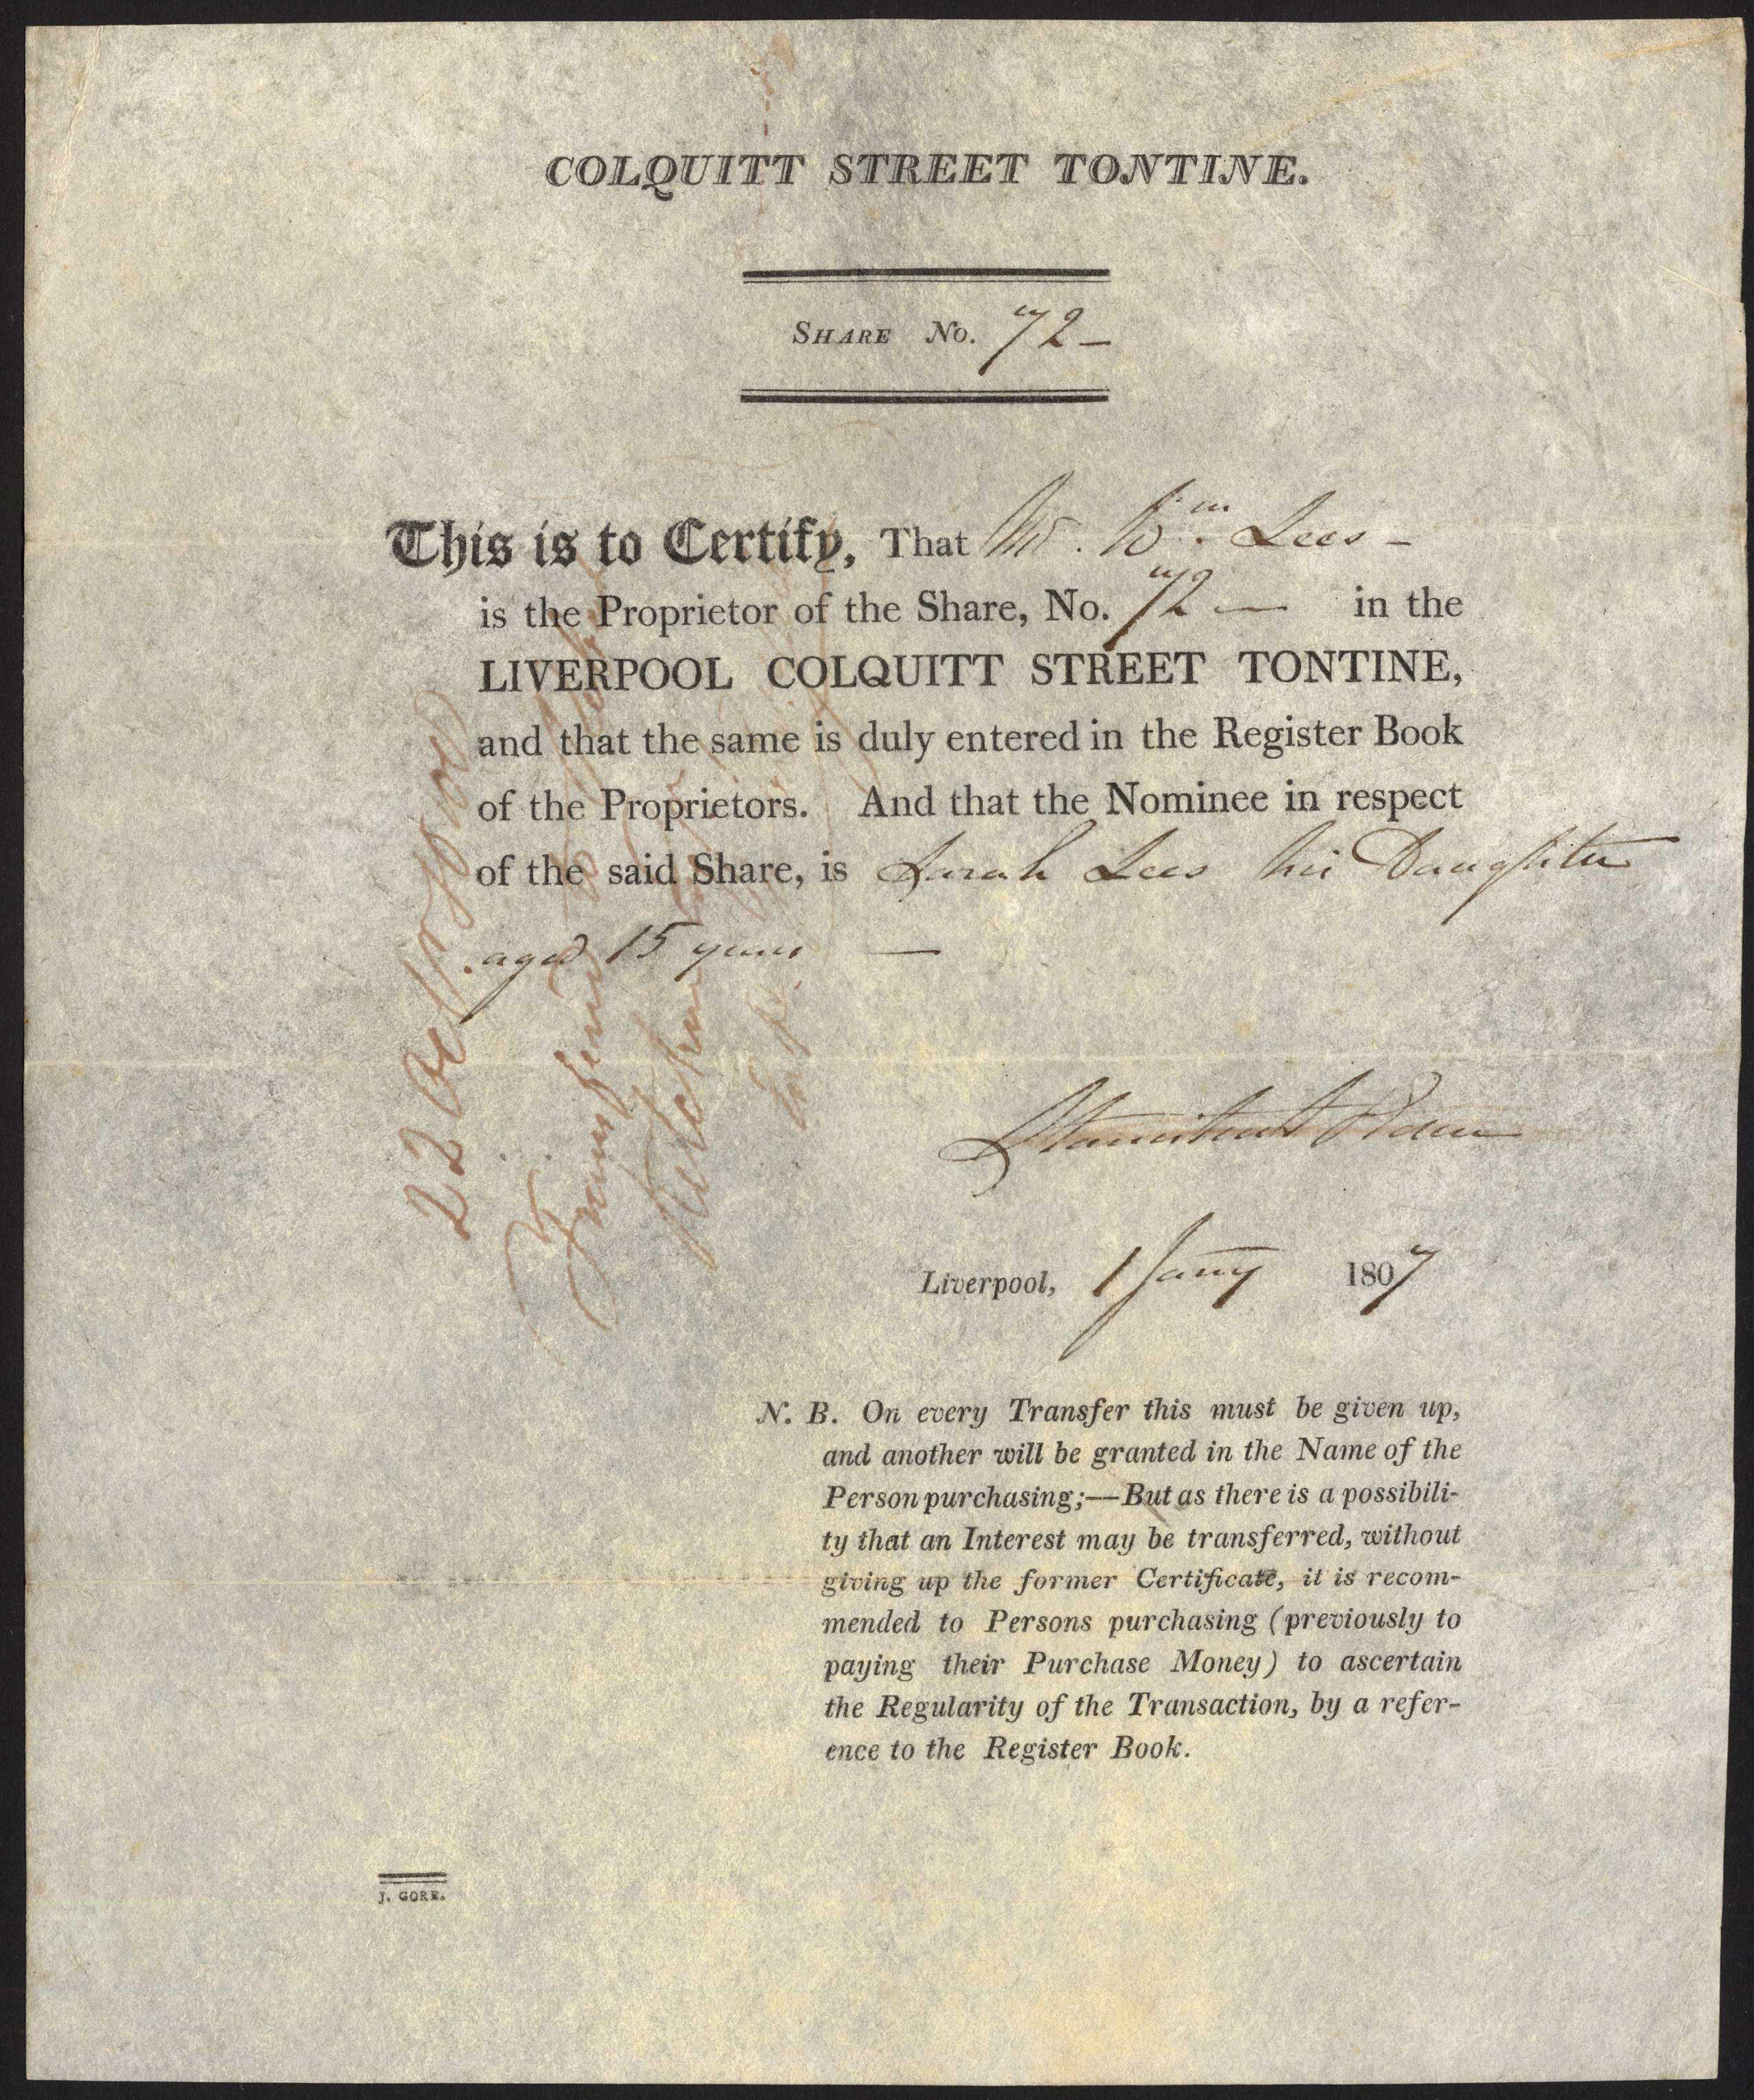 COLQUITT STREET TONTINE.
SHARE No. 72 –
This is to Certify, That Mr. Wm. Lees –
is the Proprietor of the Share, No. 72 — in the
LIVERPOOL COLQUITT STREET TONTINE,
and that the same is duly entered in the Register Book
of the Proprietors. And that the Nominee in respect
of the said Share, is Sarah Lees his Daughter
aged 15 years —
Liverpool, 1 Jany 1807
N. B. On every Transfer this must be given up,
and another will be granted in the Name of the
Person purchasing;—But as there is a possibili-
ty that an Interest may be transferred, without
giving up the former Certificate, it is recom-
mended to Persons purchasing (previously to
paying their Purchase Money) to ascertain
the Regularity of the Transaction, by a refer-
ence to the Register Book.
J. GORE.
22
Transferred